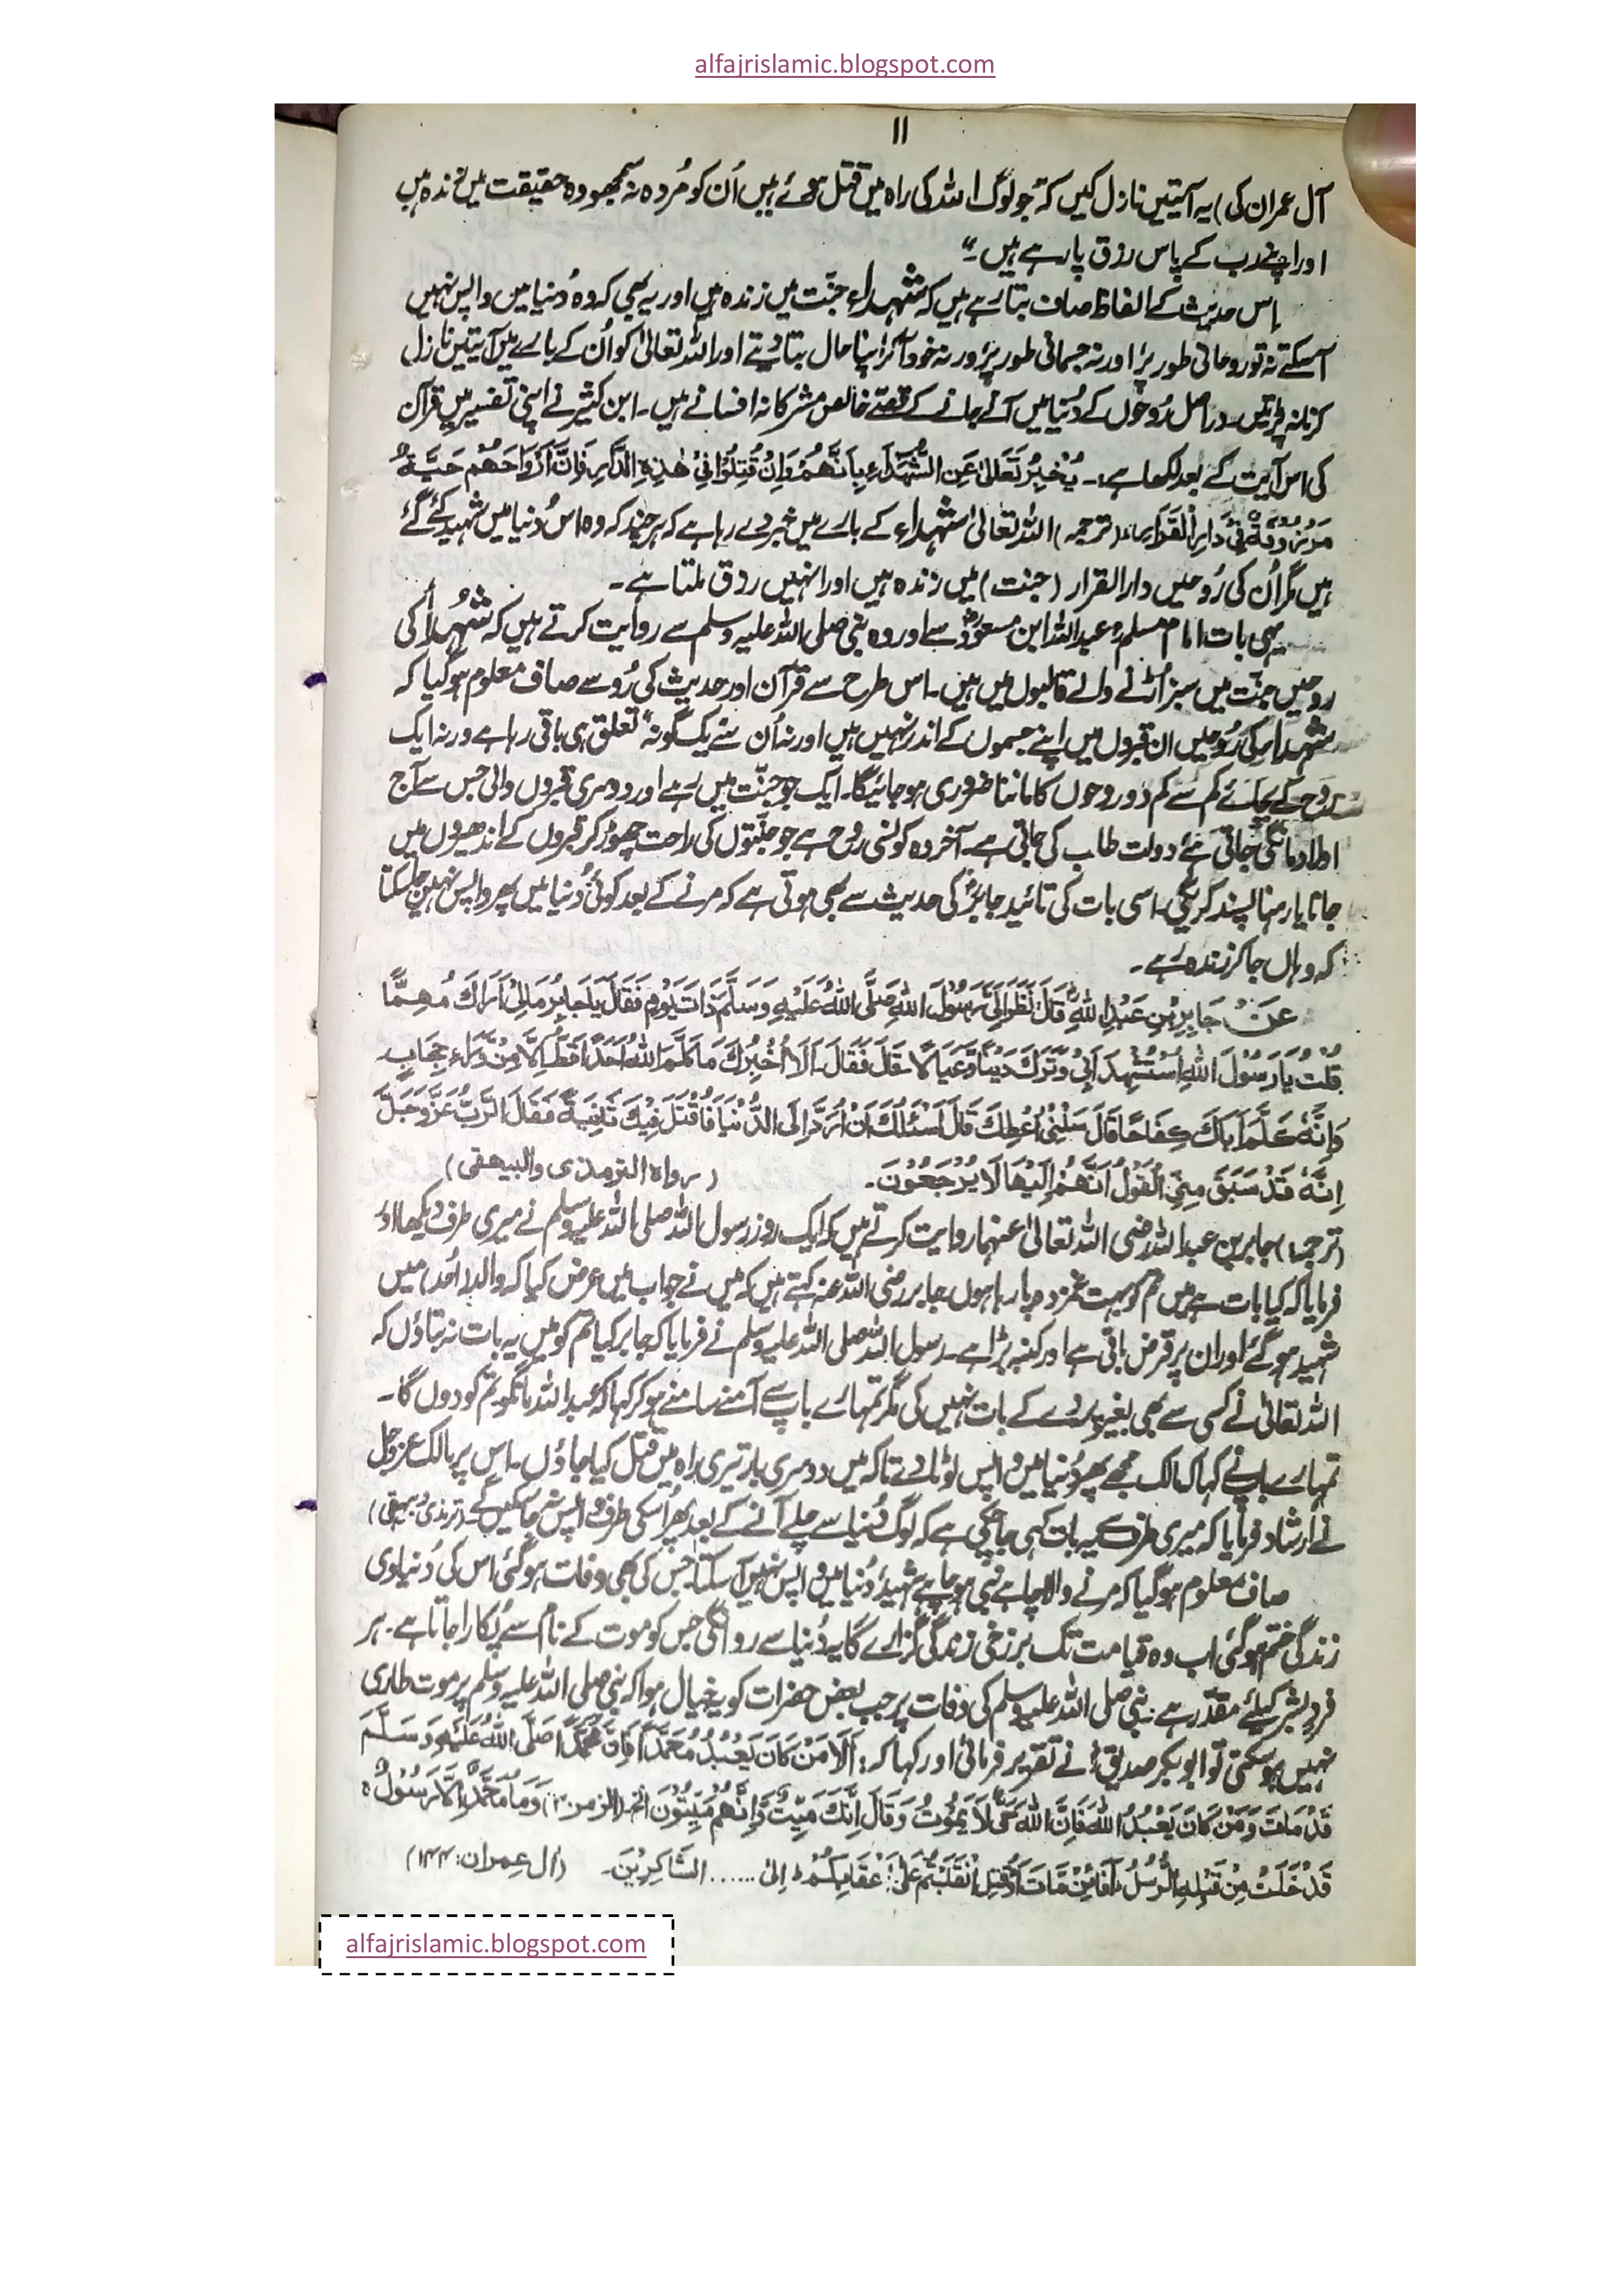 alfajrislamic.blogspot.com
۱۱
آل عمران کی) یہ آیتیں نازل کیں کہ جو لوگ اللہ کی راہ میں قتل ہوئے ہیں اُن کو مُردہ نہ سمجھو وہ حقیقت میں زندہ ہیں
اور اپنے رب کے پاس رزق پا رہے ہیں۔"
اِس حدیث کے الفاظ صاف بتا رہے ہیں کہ شہداء جنّت میں زندہ ہیں اور یہ بھی کہ وہ دُنیا میں واپس نہیں
آسکتے نہ تو روحانی طور پر اور نہ جسمانی طور پر ورنہ خود آکر اپنا حال بتا دیتے اور اللہ تعالیٰ کو اُن کے بارے میں آیتیں نازل
کرنا نہ پڑتیں۔ دراصل رُوحوں کے دُنیا میں آنے جانے کے قصّے خالص مشرکانہ افسانے ہیں۔ ابن کثیر نے اپنی تفسیر میں قرآن
کی اس آیت کے بعد لکھا ہے:۔ یُخْبِرُ تَعَالیٰ عَنِ الشُّهَدَآءِ بِاَنَّهُمْ وَاِنْ قُتِلُوْا فِیْ هٰذِهِ الدَّارِ فَاِنَّ اَرْوَاحَهُمْ حَيَّةٌ
مَرْزُوْقَةٌ فِیْ دَارِ الْقَرَارِ (ترجمہ) اللہ تعالیٰ شہداء کے بارے میں خبر دے رہا ہے کہ ہر چند کہ وہ اس دُنیا میں شہید کئے گئے
ہیں مگر اُن کی رُوحیں دارالقرار (جنت) میں زندہ ہیں اور انہیں رزق ملتا ہے۔
یہی بات امام مسلمؒ عبداللہ ابن مسعودؓ سے اور وہ نبی صلی اللہ علیہ وسلم سے روایت کرتے ہیں کہ شُہداُ کی
روحیں جنّت میں سبز اُڑنے والے قالبوں میں ہیں۔ اس طرح سے قرآن اور حدیث کی رُو سے صاف معلوم ہو گیا کہ
شہداء کی رُوحیں ان قبروں میں اپنے جسموں کے اندر نہیں ہیں اور نہ اُن سے یک گونہ تعلق ہی باقی رہا ہے ورنہ ایک
روح کے بجائے کم سے کم دو روحوں کا ماننا ضروری ہو جائیگا۔ ایک جو جنّت میں رہے اور دوسری قبروں والی جس سے آج
اولاد مانگی جاتی ہے دولت طلب کی جاتی ہے۔ آخر وہ کونسی روح ہے جو جنّتوں کی راحت چھوڑ کر قبروں کے اندھیروں میں
جانا یا رہنا پسند کریگی۔ اسی بات کی تائید جابرؓ کی حدیث سے بھی ہوتی ہے کہ مرنے کے بعد کوئی دُنیا میں پھر واپس نہیں جا سکتا
کہ وہاں جا کر زندہ رہے۔
عَنْ جَابِرِ بْنِ عَبْدِ اللهِ قَالَ نَظَرَ اِلَيَّ رَسُوْلُ اللهِ صَلَّى اللهُ عَلَيْهِ وَسَلَّمَ ذَاتَ يَوْمٍ فَقَالَ يَا جَابِرُ مَالِیْ اَرَاكَ مُهِمًّا
قُلْتُ يَا رَسُوْلَ اللهِ اسْتُشْهِدَ اَبِیْ وَتَرَكَ دَيْنًا وَّعِيَالًا۔ قَالَ فَقَالَ۔ اَلَا اُخْبِرُكَ مَا كَلَّمَ اللهُ اَحَدًا قَطُّ اِلَّا مِنْ وَّرَاءِ حِجَابٍ
وَاِنَّهٗ كَلَّمَ اَبَاكَ كِفَاحًا قَالَ سَلْنِیْ اُعْطِكَ قَالَ اَسْئَلُكَ اَنْ اُرَدَّ اِلَى الدُّنْيَا فَاُقْتَلَ فِيْكَ ثَانِيَةً فَقَالَ الرَّبُّ عَزَّوَجَلَّ
اِنَّهٗ قَدْ سَبَقَ مِنِّی الْقَوْلُ اَنَّهُمْ اِلَيْهَا لَا يُرْجَعُوْنَ۔ (رواہ الترمذی والبیھقی)
(ترجمہ) جابر بن عبداللہ رضی اللہ تعالیٰ عنہما روایت کرتے ہیں کہ ایک روز رسول اللہ صلی اللہ علیہ وسلم نے میری طرف دیکھا اور
فرمایا کہ کیا بات ہے میں تم کو بہت غمزدہ پا رہا ہوں۔ جابر رضی اللہ عنہ کہتے ہیں کہ میں نے جواب میں عرض کیا کہ والد (اُحد) میں
شہید ہو گئے اور ان پر قرض باقی ہے اور کنبہ بڑا ہے۔ رسول اللہ صلی اللہ علیہ وسلم نے فرمایا کہ جابر کیا تم کو میں یہ بات نہ بتاؤں کہ
اللہ تعالیٰ نے کسی سے بھی بغیر پردے کے بات نہیں کی مگر تمہارے باپ سے آمنے سامنے ہو کر کہا کہ عبداللہ مانگو تم کو دوں گا۔
تمہارے باپ نے کہا کہ مالک مجھے پھر دُنیا میں واپس لوٹا دے تاکہ میں دوسری بار تیری راہ میں قتل کیا جاؤں۔ اس پر مالک عزوجل
نے ارشاد فرمایا کہ میری طرف سے یہ بات کہی جا چکی ہے کہ لوگ دُنیا سے چلے آنے کے بعد پھر اُسکی طرف واپس نہ جا سکیں گے۔ (ترمذی و بیہقی)
صاف معلوم ہو گیا کہ مرنے والا چاہے نبی ہو چاہے شہید، دُنیا میں واپس نہیں آسکتا۔ جس کی بھی وفات ہو گئی اس کی دُنیاوی
زندگی ختم ہو گئی اب وہ قیامت تک برزخی زندگی گزارے گا یہ دُنیا سے روانگی جس کو موت کے نام سے پُکارا جاتا ہے۔ ہر
فرد بشر کیلئے مقدّر ہے۔ نبی صلی اللہ علیہ وسلم کی وفات پر جب بعض حضرات کو یہ خیال ہوا کہ نبی صلی اللہ علیہ وسلم پر موت طاری
نہیں ہو سکتی تو ابوبکر صدیقؓ نے تقریر فرمائی اور کہا کہ: اَلَا مَنْ كَانَ يَعْبُدُ مُحَمَّدًا فَاِنَّ مُحَمَّدًا صَلَّى اللهُ عَلَيْهِ وَسَلَّمَ
قَدْ مَاتَ وَمَنْ كَانَ يَعْبُدُ اللهَ فَاِنَّ اللهَ حَيٌّ لَا يَمُوْتُ وَقَالَ اِنَّكَ مَيِّتٌ وَّاِنَّهُمْ مَيِّتُوْنَ الخ (الزمر: ۳۰) وَمَا مُحَمَّدٌ اِلَّا رَسُوْلٌ ۚ
قَدْ خَلَتْ مِنْ قَبْلِهِ الرُّسُلُ ؕ اَفَائِنْ مَّاتَ اَوْ قُتِلَ انْقَلَبْتُمْ عَلٰی اَعْقَابِكُمْ ؕ اِلیٰ ...... الشَّاكِرِيْنَ۔ (اٰل عِمران: ۱۴۴)
alfajrislamic.blogspot.com